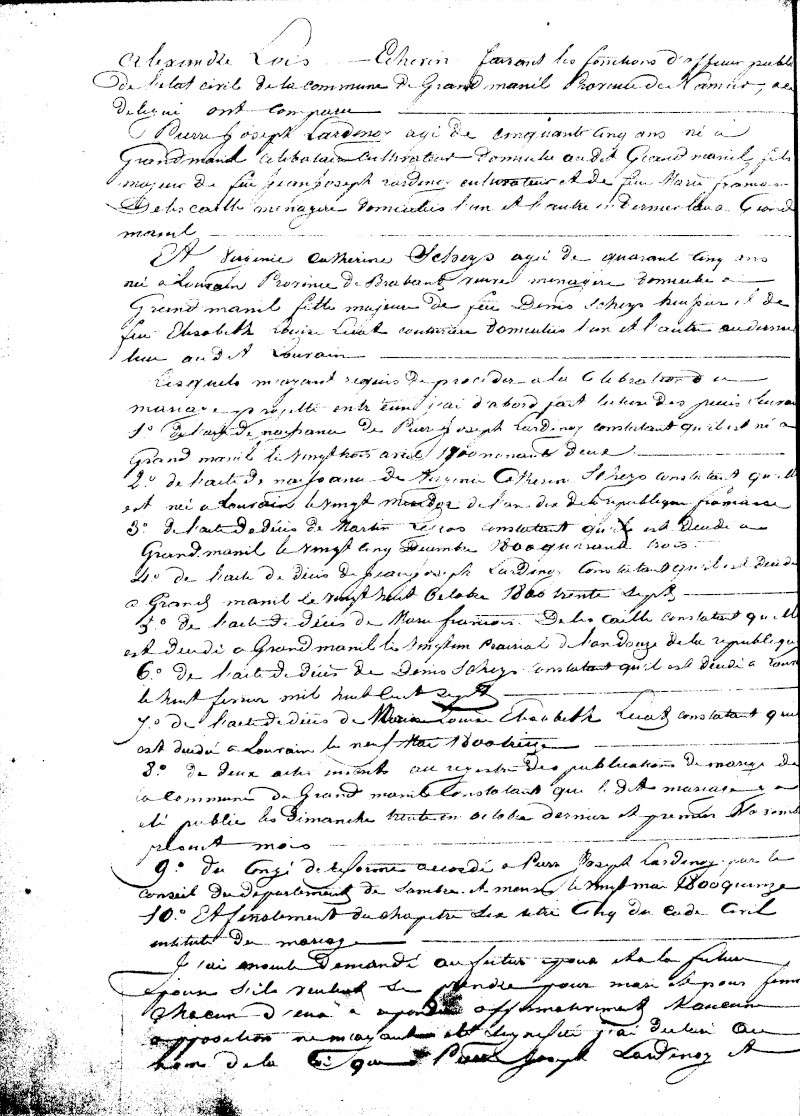 Alexandre Lois Echevin faisant les fonctions d'officier public
de l'etat civil de la commune de Grand manil Province de Namur,
ont comparu
Pierre Joseph Lardenoy agé de cinquante cinq ans né à
Grand manil celibataire cultivateur domicilié audit Grand manil, fils
majeur de feu jean joseph Lardenoy cultivateur et de feu Marie françoise
Delescaille menagere domiciliés l'un et l'autre en dernier lieu a Grand
manil
Et Virginie Catherine Scheys agé de quarant cinq ans
né a Louvain Province de Brabant, veuve menagere domicilié a
Grand manil fille majeure de feu Denis Scheys et de
feu Elisabeth Louise Licot couturiere domiciliés l'un et l'autre au dernier
lieu audit Louvain
Lesquels m'ayant requis de proceder a la celebration du
mariage projetté entre eux j'ai d'abord fait lecture des pieces suivan
1.° de l'acte de naissance de Pierre Joseph Lardenoy constatant qu'il est né a
Grand manil le vingt trois avril 1700 nonante deux
2.° de l'acte de naissance de Virginie Catherin Scheys constatant qu'elle
est né a Louvain le vingt messidor de l'an dix de la republique francaise
3.° de l'acte de décès de Martin constatant qu'il est décédé a
Grand manil le vingt cinq Decembre 1800 quarant trois
4.° de l'acte de décès de Jean joseph Lardenoy constatant qu'il est décédé
a Grand manil le vingt huit Octobre 1800 trente sept
5.° de l'acte de décès de Marie francoise Delescaille constatant qu'elle
est décédé a Grand manil le prairial de l'an douze de la republique
6.° de l'acte de décès de Denis Scheys constatant qu'il est décédé a Louvain
le huit fevrier mil huit cent sept
7.° de l'acte de décès de Marie Louise Elisabeth Licot constatant que
est décédé a Louvain le neuf Mai 1800 treize
8.° de deux actes inserés au registre des publications de mariage de
la Commune de Grand manil constatant que le dit mariage a
eté publié les dimanche trente en octobre dernier et premier Novembre
présent mois
9.° du Congé de reforme accordé a Pierre Joseph Lardenoy par le
conseil du Departement de Sambre et meuse le vingt mai 1800 quinze
10.° Et finalement du chapitre six titre Cinq du Code Civil
intitulé du mariage
J'ai ensuite Demandé au futur epoux et a la future
epouse s'ils veulent se prendre pour mari et pour femme
chacun d'eux a repondu affirmativement et aucune
opposition ne m'ayant eté signifié j'ai declaré au
nom de la loi que Pierre Joseph Lardenoy et